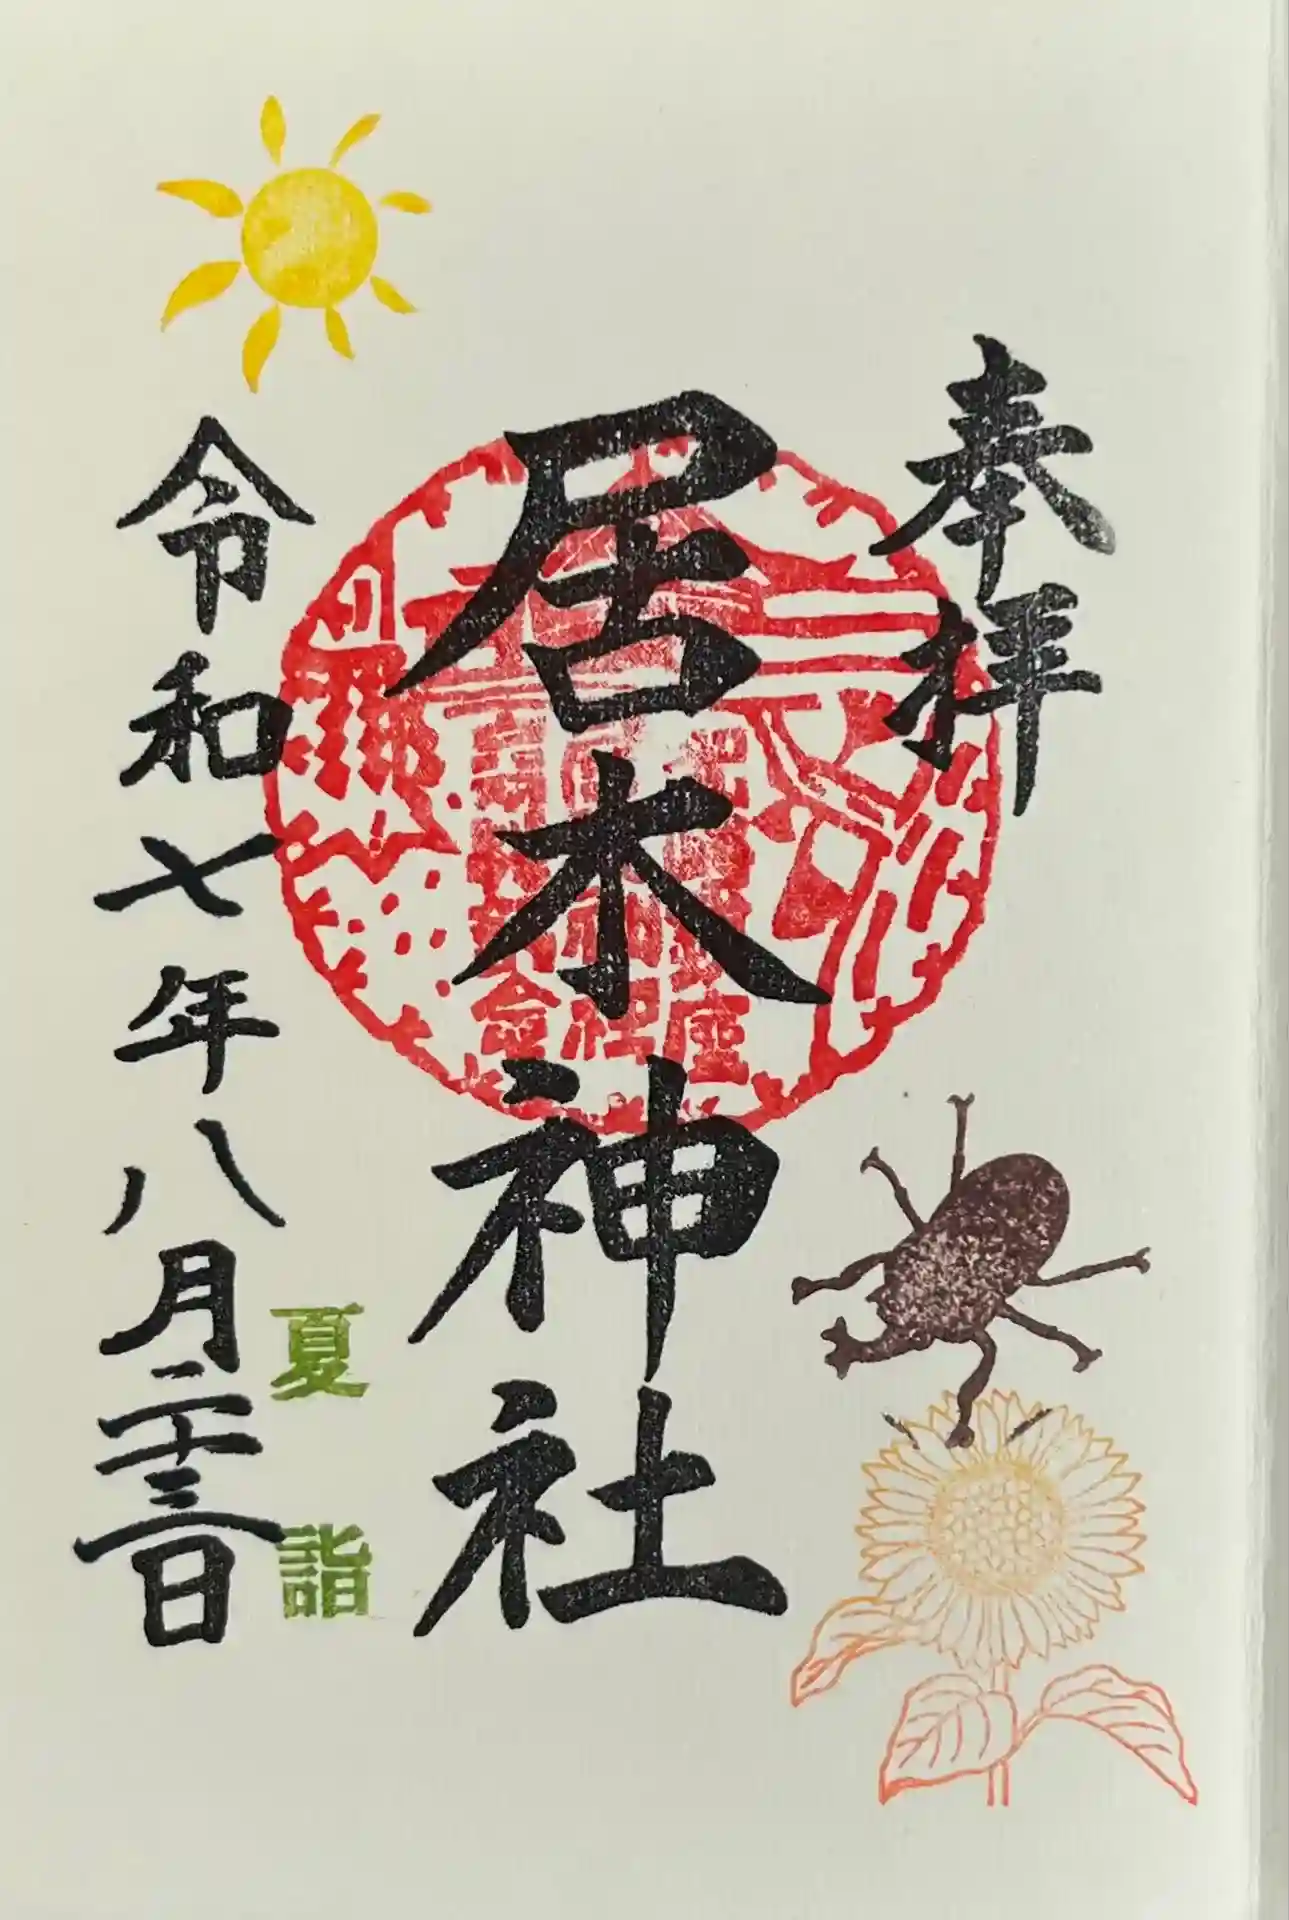 奉拝
居木神社
夏詣
令和七年八月二十三日